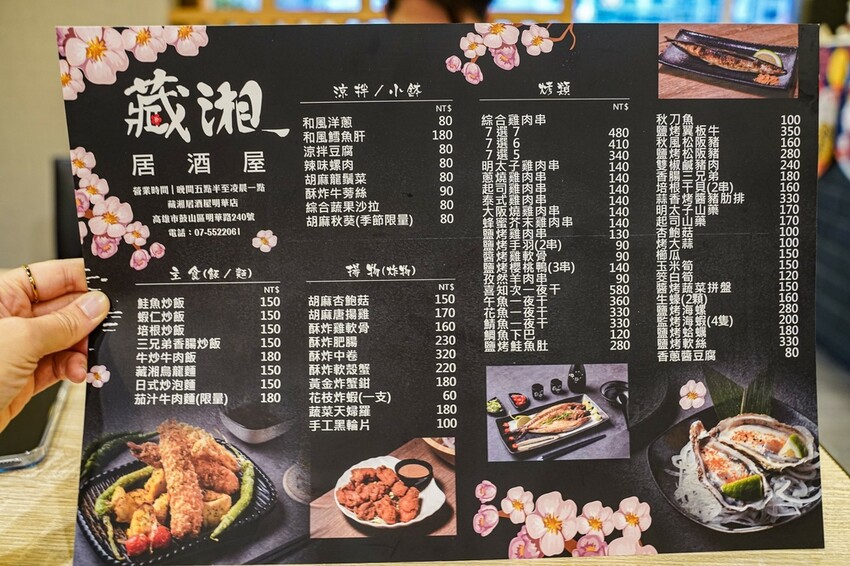 藏湘
居酒屋
營業時間｜晚間五點半至凌晨一點
藏湘居酒屋明華店
高雄市鼓山區明華路240號
電話：07-5522061
主食(飯/麵)
NT$
鮭魚炒飯 150
蝦仁炒飯 150
培根炒飯 150
三兄弟香腸炒飯 150
牛炒牛肉飯 180
藏湘烏龍麵 150
日式炒泡麵 150
茄汁牛肉麵(限量) 180
涼拌/小缽
NT$
和風洋蔥 80
和風鱈魚肝 180
涼拌豆腐 80
辣味螺肉 80
胡麻龍鬚菜 80
酥炸牛蒡絲 90
綜合蔬果沙拉 80
胡麻秋葵(季節限量) 80
揚物(炸物)
NT$
胡麻杏鮑菇 150
胡麻唐揚雞 170
酥炸雞軟骨 160
酥炸肥腸 230
酥炸中卷 320
酥炸軟殼蟹 220
黃金炸蟹鉗 180
花枝炸蝦(一支) 60
蔬菜天婦羅 180
手工黑輪片 100
烤類
NT$
綜合雞肉串
7選7 480
7選6 410
7選5 340
明太子雞肉串 140
蔥燒雞肉串 140
起司雞肉串 140
泰式雞肉串 140
大阪燒雞肉串 140
蜂蜜芥末雞肉串 140
鹽烤雞肉串 130
鹽烤手羽(2串) 90
醬烤雞軟骨 90
鹽烤櫻桃鴨(3串) 140
孜然羊肉串 90
喜知次一夜干 580
午魚一夜干 360
花魚一夜干 330
鯖魚一夜干 330
鯛魚下巴 120
鹽烤鮭魚肚 280
NT$
秋刀魚 100
鹽烤翼板牛 350
秋風松阪豬 160
鹽烤松阪豬 160
雙椒鹹豬肉 240
香腸三兄弟 180
培根干貝(2串) 160
蒜香烤醬豬肋排 330
明太子山藥 170
起司山藥 170
杏鮑菇 100
烤大蒜 100
櫛瓜 150
玉米筍 120
筊白筍 120
醬烤蔬菜拼盤 150
生蠔(2顆) 160
鹽烤海螺 280
鹽烤海蝦(4隻) 200
鹽烤蛤蠣 180
鹽烤軟絲 330
香蔥醬豆腐 80